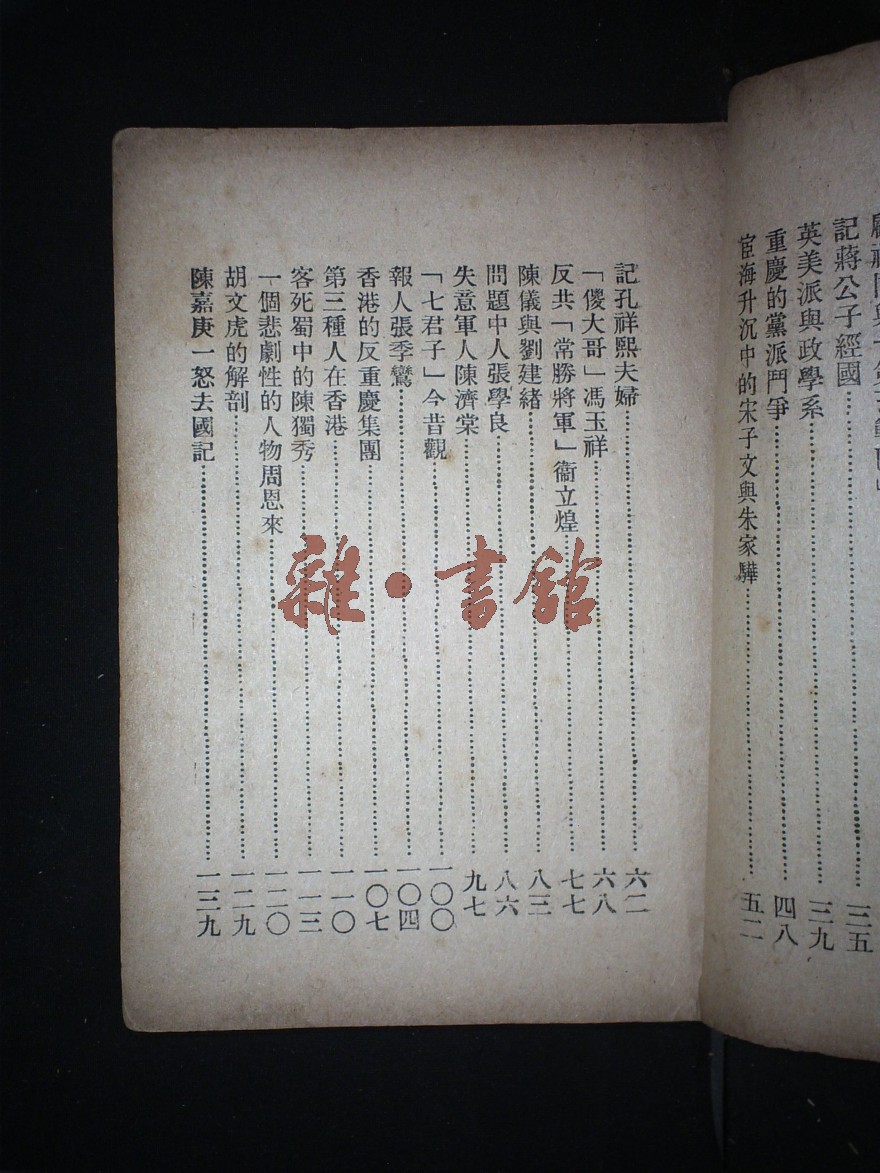 記蔣公子經國……三五
英美派與政學系……三九
重慶的黨派鬥爭……四八
宦海升沉中的宋子文與朱家驊……五二
記孔祥熙夫婦……六二
「儍大哥」馮玉祥……六八
反共「常勝將軍」衞立煌……七七
陳儀與劉建緒……八三
問題中人張學良……八六
失意軍人陳濟棠……九七
「七君子」今昔觀……一〇〇
報人張季鸞……一〇四
香港的反重慶集團……一〇七
第三種人在香港……一一〇
客死蜀中的陳獨秀……一一三
一個悲劇性的人物周恩來……一二〇
胡文虎的解剖……一二九
陳嘉庚一怒去國記……一三九
雜·書館